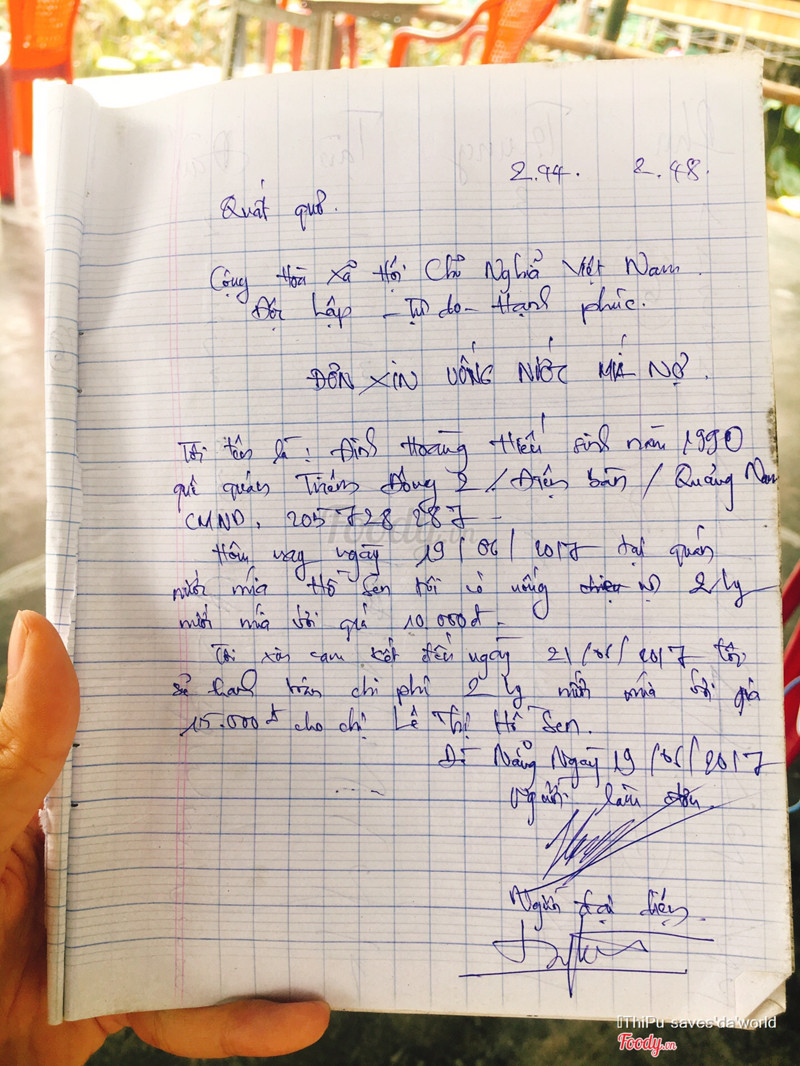 2.44. 2.48.
Quất quơ.
Cộng Hoà Xã Hội Chủ Nghĩa Việt Nam.
Độc Lập - Tự do - Hạnh phúc.
ĐƠN XIN UỐNG NƯỚC MÍA NỢ.
Tôi tên là: Đinh Hoàng Hiếu sinh năm 1990
quê quán Triêm Đông 2 / Điện bàn / Quảng Nam
CMND. 205728287
Hôm nay ngày 19/06/2017 tại quán
nước mía Hồ Sen tôi có uống nợ 2 ly
nước mía với giá 10.000đ.
Tôi xin cam kết đến ngày 21/06/2017 tôi
sẽ hoàn chi phí 2 ly nước mía với giá
15.000đ cho chị Lê Thị Hồ Sen.
Đà Nẵng Ngày 19/06/2017
Người làm đơn
Người đại diện.
Foody.vn
ThiPu saves da world
Foody.vn